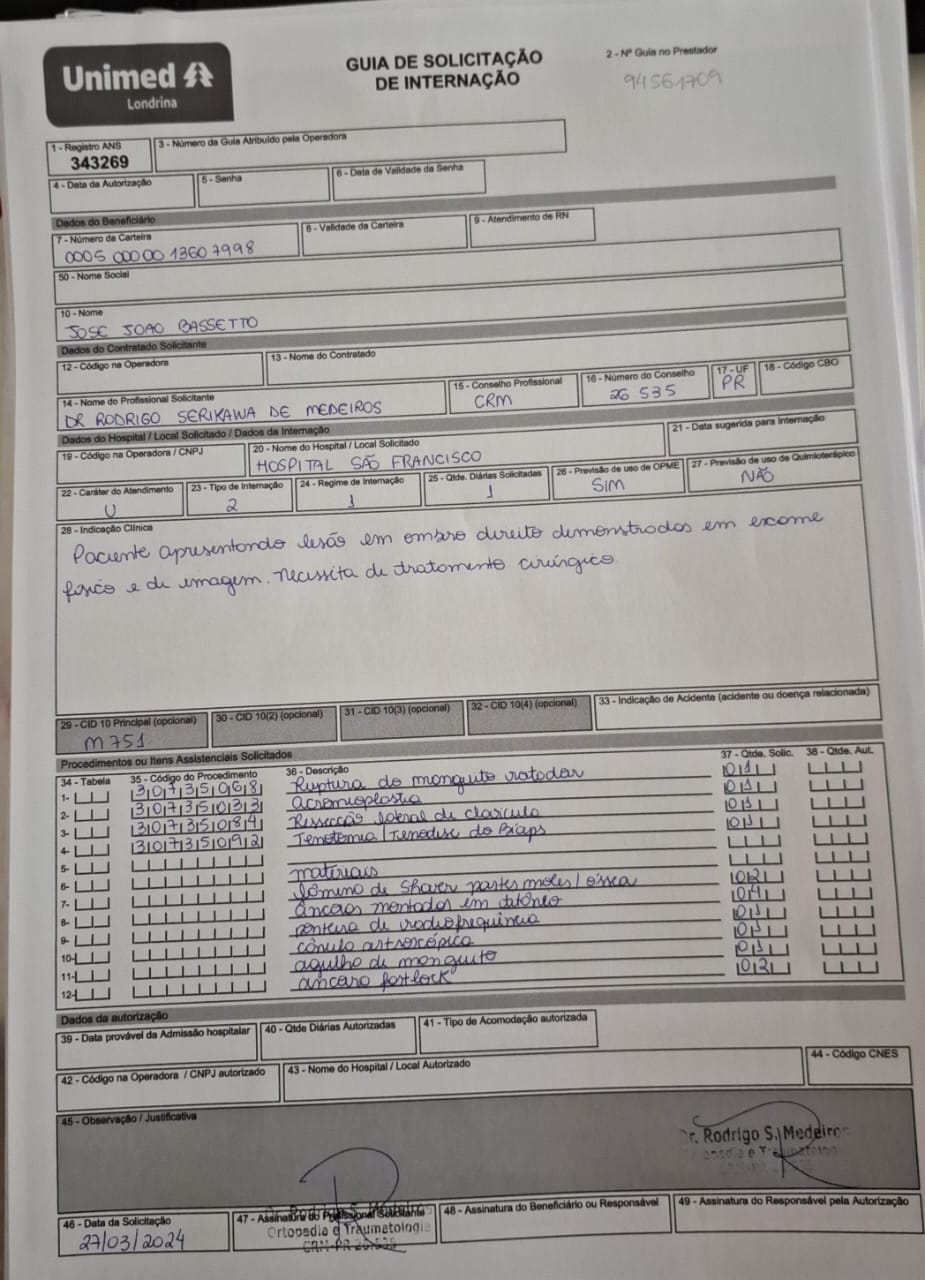 Unimed
Londrina
GUIA DE SOLICITAÇÃO
DE INTERNAÇÃO
2 - Nº Guia no Prestador
94561709
1 - Registro ANS
343269
3 - Número da Guia Atribuído pela Operadora
4 - Data da Autorização
5 - Senha
6 - Data de Validade da Senha
Dados do Beneficiário
7 - Número da Carteira
0005 00000 1360 7998
8 - Validade da Carteira
9 - Atendimento de RN
50 - Nome Social
10 - Nome
JOSE JOAO BASSETTO
Dados do Contratado Solicitante
12 - Código na Operadora
13 - Nome do Contratado
14 - Nome do Profissional Solicitante
DR RODRIGO SERIKAWA DE MEDEIROS
15 - Conselho Profissional
CRM
16 - Número do Conselho
26 535
17 - UF
PR
18 - Código CBO
Dados do Hospital / Local Solicitado / Dados da Internação
19 - Código na Operadora / CNPJ
20 - Nome do Hospital / Local Solicitado
HOSPITAL SÃO FRANCISCO
21 - Data sugerida para Internação
22 - Caráter do Atendimento
U
23 - Tipo de Internação
2
24 - Regime de Internação
1
25 - Qtde. Diárias Solicitadas
1
26 - Previsão de uso de OPME
SIM
27 - Previsão de uso de Quimioterápico
NÃO
28 - Indicação Clínica
Paciente apresentando lesão em ombro direito demonstrados em exame
físico e de imagem. Necessita de tratamento cirúrgico
29 - CID 10 Principal (opcional)
M751
30 - CID 10(2) (opcional)
31 - CID 10(3) (opcional)
32 - CID 10(4) (opcional)
33 - Indicação de Acidente (acidente ou doença relacionada)
Procedimentos ou Itens Assistenciais Solicitados
34 - Tabela 35 - Código do Procedimento 36 - Descrição 37 - Qtde. Solic. 38 - Qtde. Aut.
1- 30735068 Ruptura do manguito rotador 01
2- 30735033 Acromioplastia 01
3- 30735084 Ressecção lateral de clavícula 01
4- 30735092 Tenotomia/Tenodese do Bíceps 01
5-
6- materiais
7- lâmina de Shaver partes moles/óssea 02
8- âncoras montadas em titânio 04
9- ponteira de radiofrequência 01
10- cânula artroscópica 01
11- agulha de manguito 01
12- âncora footlock 02
Dados da autorização
39 - Data provável da Admissão hospitalar
40 - Qtde Diárias Autorizadas
41 - Tipo de Acomodação autorizada
42 - Código na Operadora / CNPJ autorizado
43 - Nome do Hospital / Local Autorizado
44 - Código CNES
45 - Observação / Justificativa
Dr. Rodrigo S. Medeiros
Ortopedia e Traumatologia
46 - Data da Solicitação
27/03/2024
47 - Assinatura do Profissional Solicitante
Dr. Rodrigo S. Medeiros
Ortopedia e Traumatologia
CRM-PR 26.535
48 - Assinatura do Beneficiário ou Responsável
49 - Assinatura do Responsável pela Autorização